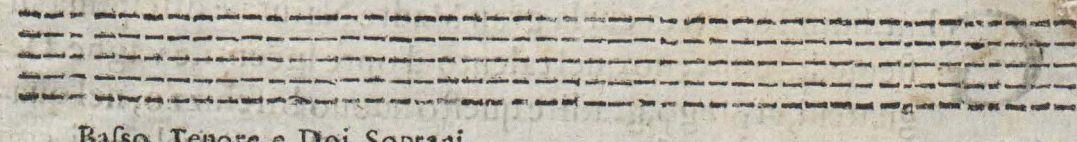 Baſso Tenore e Doi Soprani